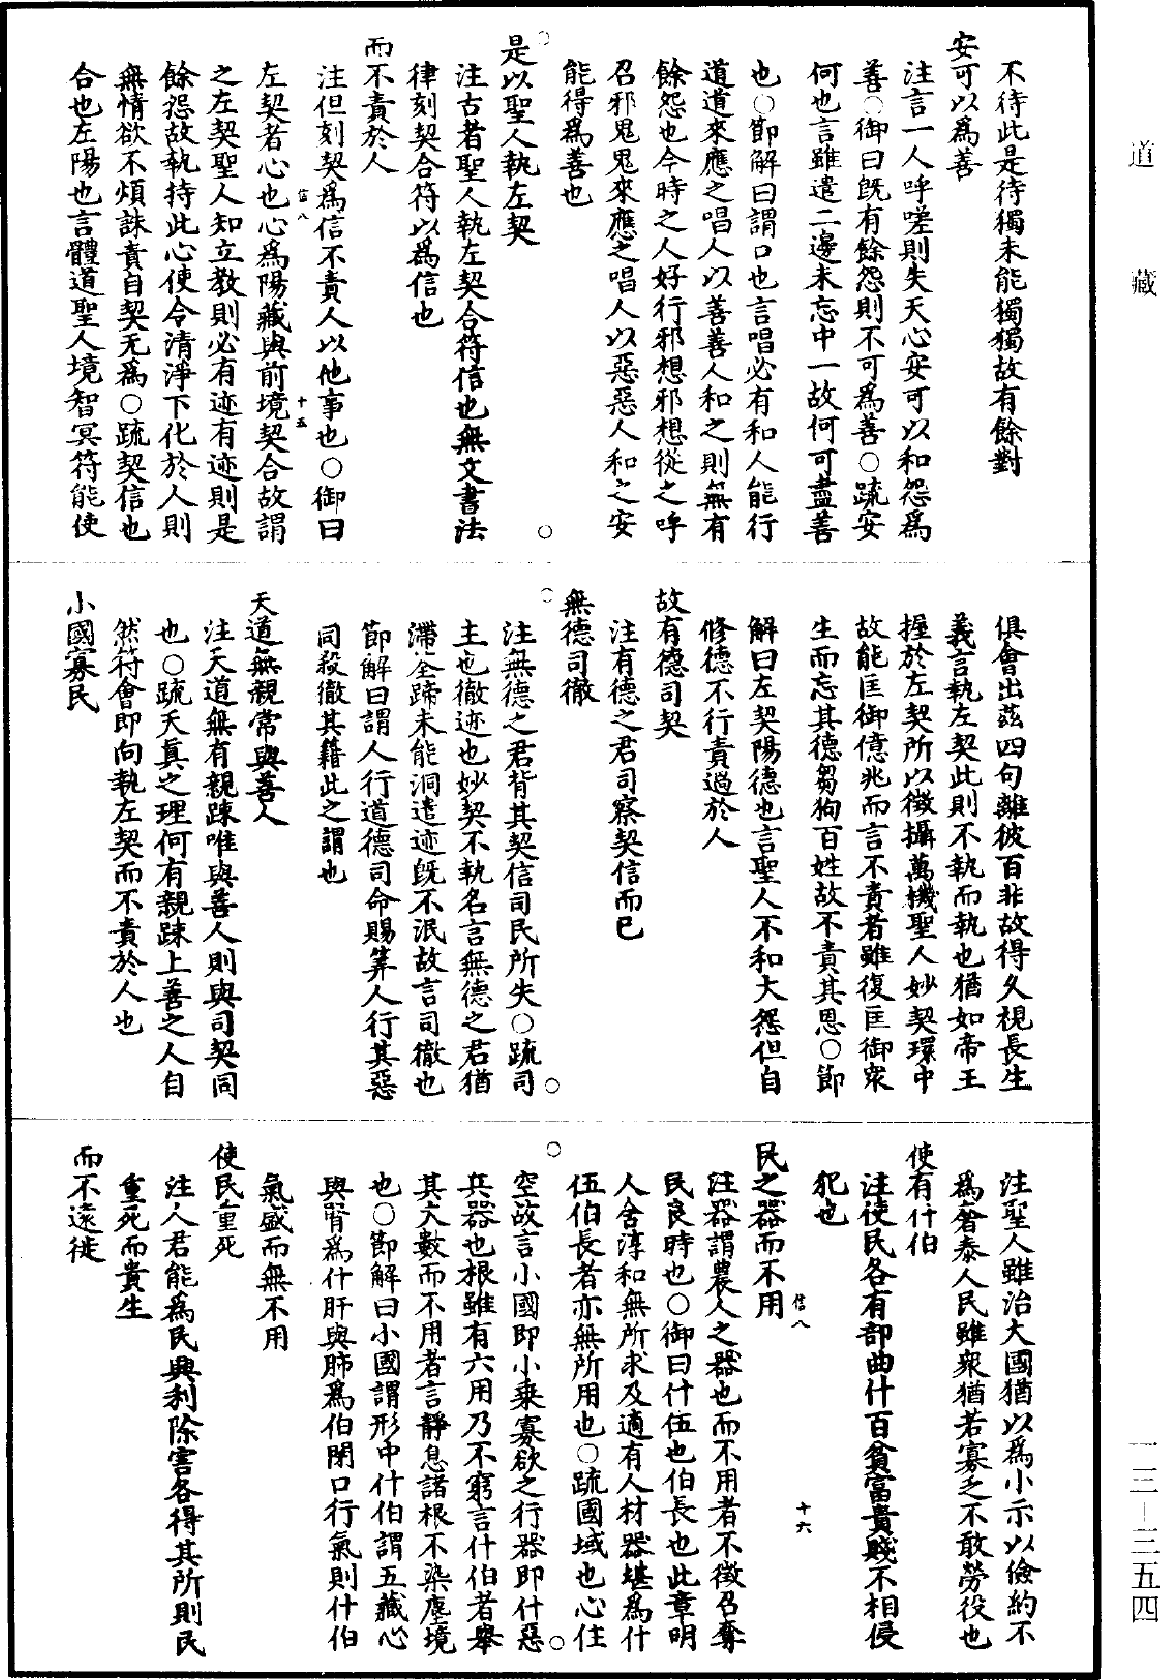 道藏
不待此是待獨未能獨獨故有餘對
安可以為善
注言一人呼嗟則失天心安可以和怨為
善○御曰既有餘怨則不可為善○疏安
何也言雖遣二邊未忘中一故何可盡善
也○節解曰謂口也言唱必有和人能行
道道來應之唱人以善善人和之則無有
餘怨也今時之人好行邪想邪想從之呼
召邪鬼鬼來應之唱人以惡惡人和之安
能得為善也
是以聖人執左契
注古者聖人執左契合符信也無文書法
律刻契合符以為信也
而不責於人
注但刻契為信不責人以他事也○御曰
信八
十五
左契者心也心為陽藏與前境契合故謂
之左契聖人知立教則必有迹有迹則是
餘怨故執持此心使令清淨下化於人則
無情欲不煩誅責自契无為○疏契信也
合也左陽也言體道聖人境智冥符能使
俱會出茲四句離彼百非故得久視長生
義言執左契此則不執而執也猶如帝王
握於左契所以徵攝萬機聖人妙契環中
故能匡御億兆而言不責者雖復匡御眾
生而忘其德芻狗百姓故不責其恩○節
解曰左契陽德也言聖人不和大怨但自
修德不行責過於人
故有德司契
注有德之君司察契信而已
無德司徹
注無德之君背其契信司民所失○疏司
主也徹迹也妙契不執名言無德之君猶
滯筌蹄未能洞遣迹既不泯故言司徹也
節解曰謂人行道德司命賜筭人行其惡
司殺徹其籍此之謂也
天道無親常與善人
注天道無有親踈唯與善人則與司契同
也○疏天真之理何有親踈上善之人自
然符會即向執左契而不責於人也
小國寡民
注聖人雖治大國猶以為小示以儉約不
為奢泰人民雖衆猶若寡乏不敢勞役也
使有什伯
注使民各有部曲什百貧富貴賤不相侵
犯也
信八
十六
民之器而不用
注器謂農人之器也而不用者不徵召奪
民良時也○御曰什伍也伯長也此章明
人含淳和無所求及適有人材器堪為什
伍伯長者亦無所用也○疏國域也心住
空故言小國即小乘寡欲之行器即什惡
兵器也根雖有六用乃不窮言什伯者舉
其大數而不用者言靜息諸根不染塵境
也○節解曰小國謂形中什伯謂五藏心
與腎為什肝與肺為伯閉口行氣則什伯
氣盛而無不用
使民重死
注人君能為民興利除害各得其所則民
重死而貴生
而不遠徙
一三—三五四